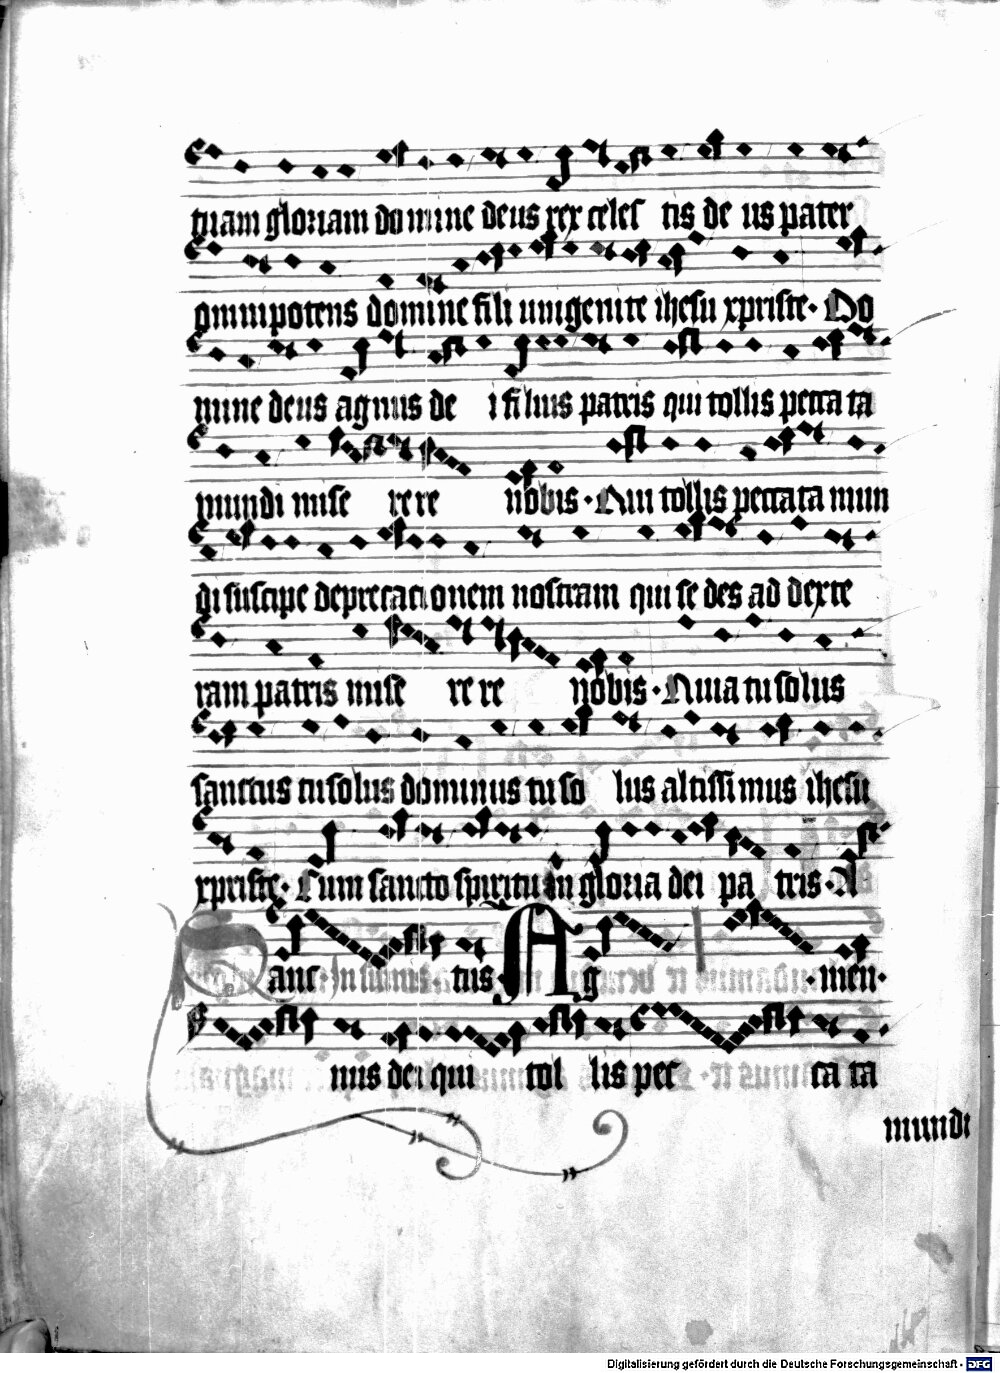 tuam gloriam do mine deus rex celes tis de us pater
omnipotens domine fili unigenite ihesu xpriste · Do
mine deus agnus de i filius patris qui tollis peccata
mundi mise re re nobis · Qui tollis peccata mun
di suscipe deprecacionem nostram qui se des ad dexte
ram patris mise re re nobis · Quia tu solus
sanctus tu solus dominus tu so lus altissimus ihesu
xpriste · Cum sancto spiritu in gloria dei pa tris · A
Sanc · tus · Ag · men ·
nus dei qui tol lis pec ca ta
mundi
Digitalisierung gefördert durch die Deutsche Forschungsgemeinschaft - DFG